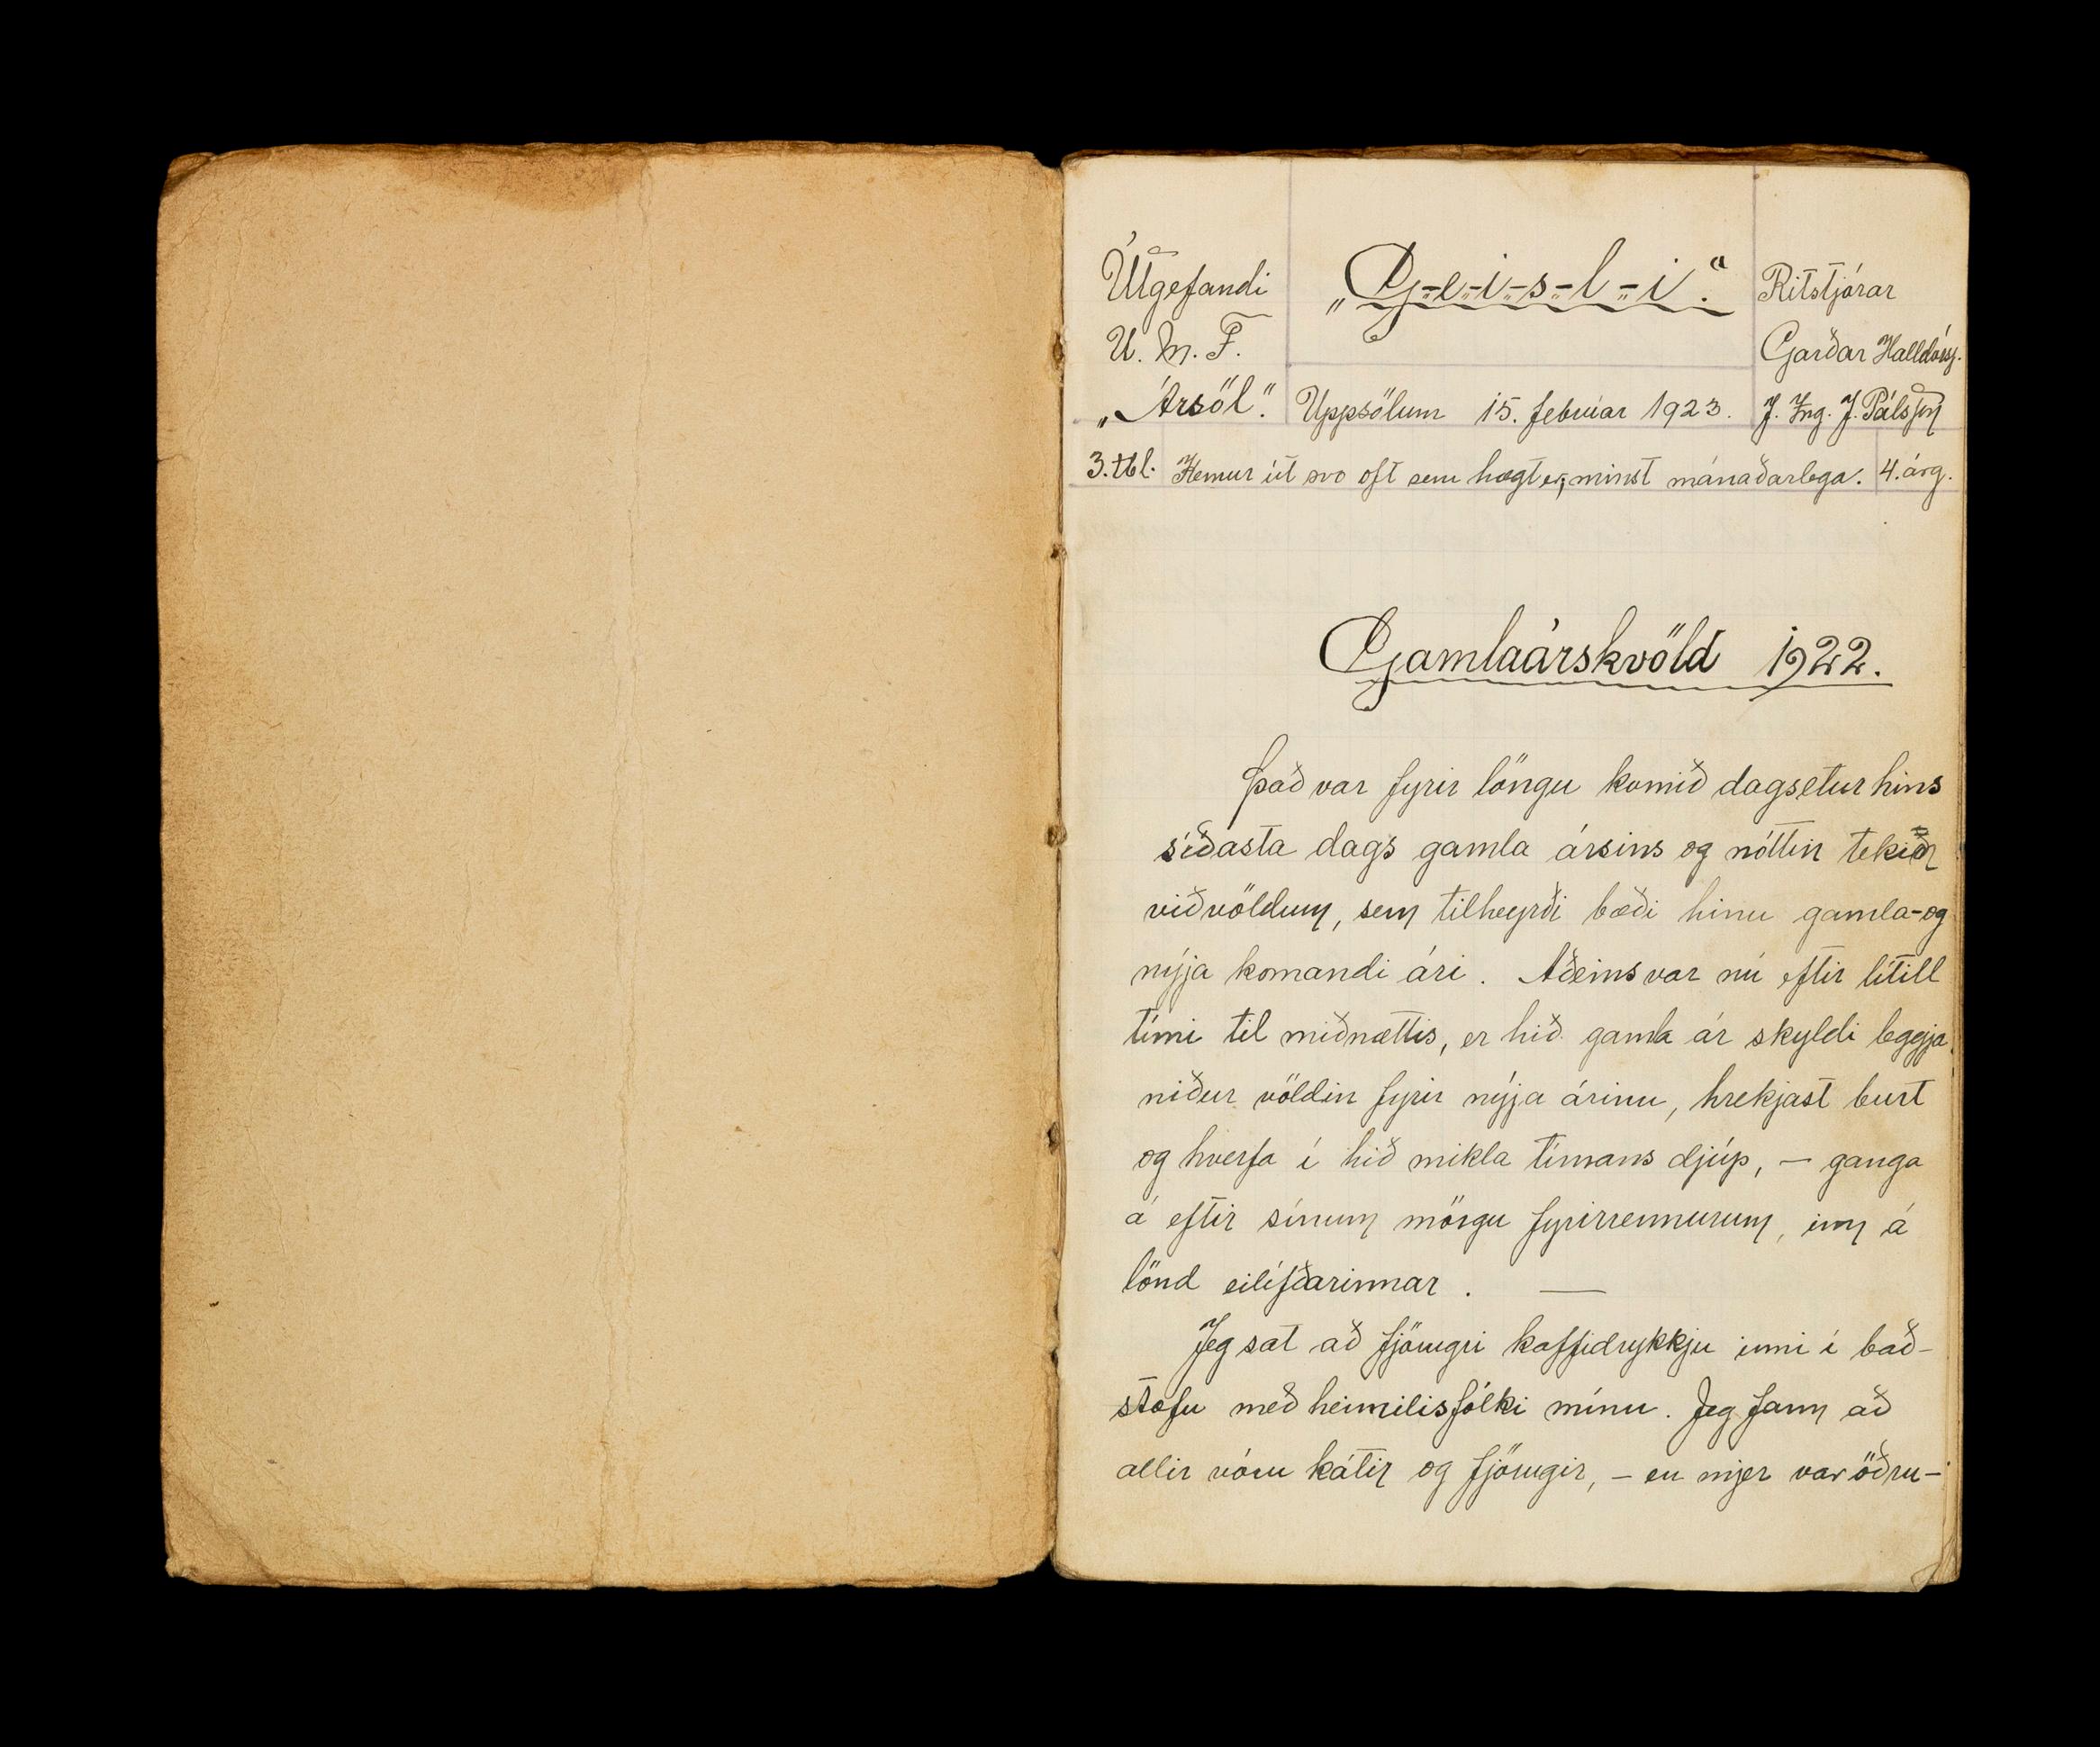 Útgefandi
U. M. F.
„Ársól“.
„G-e-i-s-l-i“.
Uppsölum 15. febrúar 1923.
Ritstjórar
Garðar Halldórss.
J. Ing. J. Pálsson
3. tbl. Kemur út svo oft sem hægt er, minst mánaðarlega. 4. árg.
Gamlaárskvöld 1922.
Það var fyrir löngu komið dagsetur hins
síðasta dags gamla ársins og nóttin tekin
við völdum, sem tilheyrði bæði hinu gamla- og
nýja komandi ári. Aðeins var nú eftir lítill
tími til miðnættis, er hið gamla ár skyldi leggja
niður völdin fyrir nýja árinu, hrekjast burt
og hverfa í hið mikla tímans djúp, – ganga
á eftir sínum mörgu fyrirrennurum, inn á
lönd eilífðarinnar. —
Jeg sat að fjörugri kaffidrykkju inni í bað-
stofu með heimilisfólki mínu. Jeg fann að
allir vóru kátir og fjörugir, – en mjer var öðru-